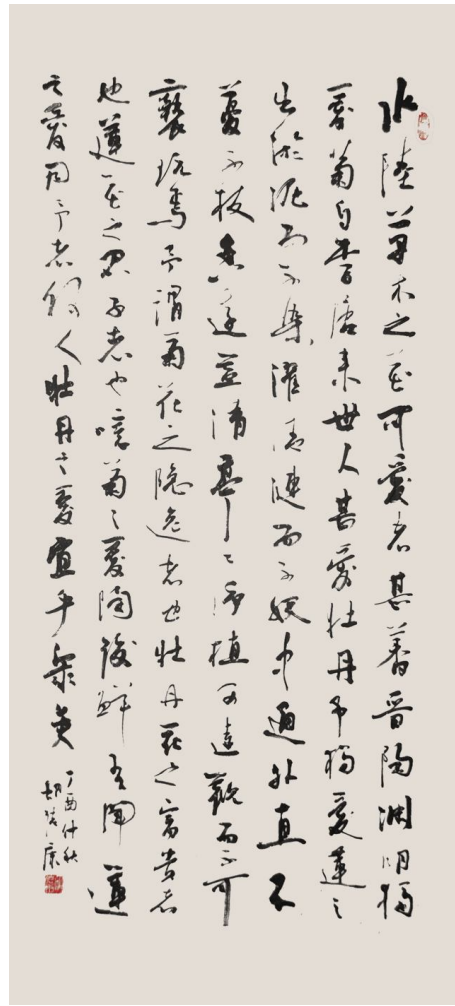 水陸草木之花可愛者甚蕃晉陶淵明獨
愛菊自晉唐来世人甚愛牡丹予獨愛蓮之
出淤泥而不染濯清漣而不妖中通外直不
蔓不枝香遠益清亭亭净植可遠觀而不可
褻玩焉予謂菊花之隐逸者也牡丹花之富貴者
也蓮花之君子者也噫菊之愛陶後鮮有聞蓮
之愛同予者何人牡丹之愛宜乎衆矣
丁酉仲秋